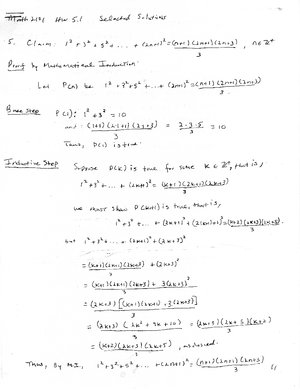 Math 2101 HW 5.1 Selected Solutions
5. Claim: 1² + 3² + 5² + ... + (2n+1)² = (n+1)(2n+1)(2n+3)/3, n ∈ Z⁺
Proof by Mathematical Induction:
Let P(n) be 1² + 3² + 5² + ... + (2n+1)² = (n+1)(2n+1)(2n+3)/3
Base Step P(1): 1² + 3² = 10
and (1+1)(2·1+1)(2·1+3)/3 = 2·3·5/3 = 10
Thus, P(1) is true.
Inductive Step Suppose P(k) is true for some k ∈ Z⁺, that is,
1² + 3² + ... + (2k+1)² = (k+1)(2k+1)(2k+3)/3
We must show P(k+1) is true, that is,
1² + 3² + ... + (2k+1)² + (2(k+1)+1)² = (k+2)(2k+3)(2k+5)/3
but 1² + 3² + ... + (2k+1)² + (2k+3)²
= (k+1)(2k+1)(2k+3)/3 + (2k+3)²
= (k+1)(2k+1)(2k+3) + 3(2k+3)²/3
= (2k+3)[(k+1)(2k+1) + 3(2k+3)]/3
= (2k+3)(2k² + 9k + 10)/3 = (2k+3)(2k+5)(k+2)/3
= (k+2)(2k+3)(2k+5)/3, as desired.
Thus, By M.I., 1² + 3² + 5² + ... + (2n+1)² = (n+1)(2n+1)(2n+3)/3